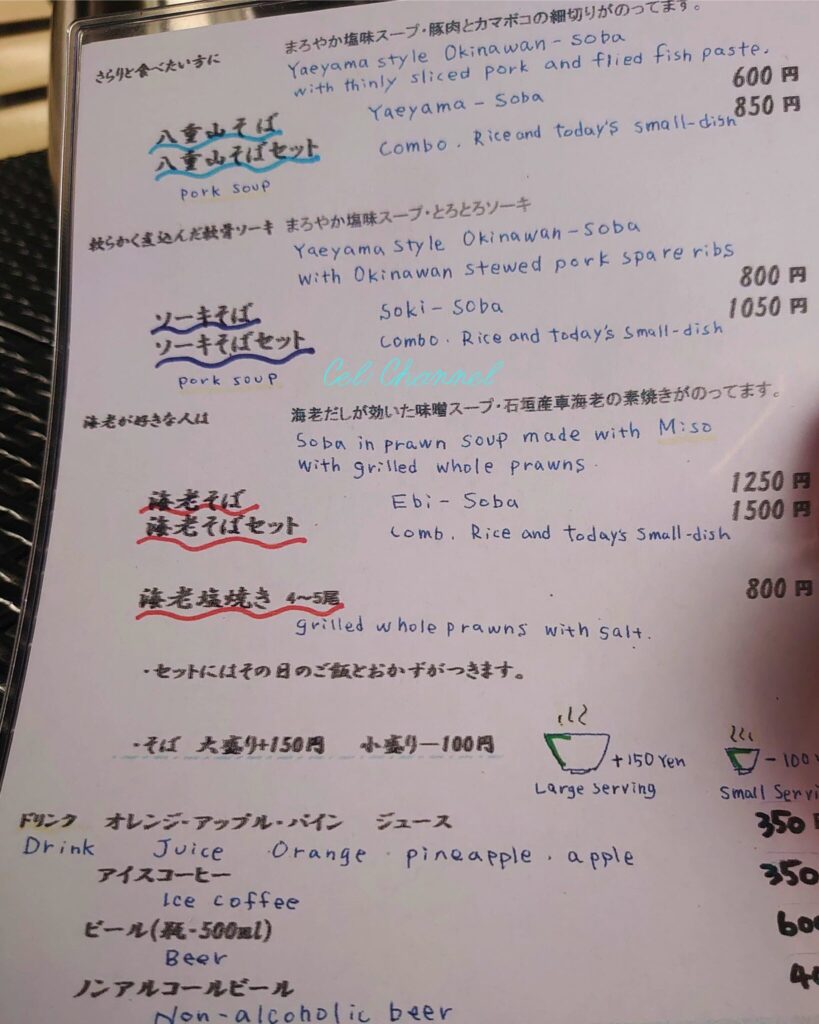 まろやか塩味スープ・豚肉とカマボコの細切りがのってます。
さらりと食べたい方に
Yaeyama style Okinawan-soba
with thinly sliced pork and flied fish paste.
八重山そば Yaeyama-Soba 600円
八重山そばセット Combo. Rice and today's small-dish 850円
pork soup
軟らかく煮込んだ軟骨ソーキ まろやか塩味スープ・とろとろソーキ
Yaeyama style Okinawan-soba
with Okinawan stewed pork spare ribs
ソーキそば Soki-Soba 800円
ソーキそばセット Combo. Rice and today's small-dish 1050円
pork soup
Cel Channel
海老が好きな人は 海老だしが効いた味噌スープ・石垣産車海老の素焼きがのってます。
Soba in prawn soup made with Miso
with grilled whole prawns.
海老そば Ebi-Soba 1250円
海老そばセット Comb. Rice and today's small-dish 1500円
海老塩焼き 4〜5尾 800円
grilled whole prawns with salt.
・セットにはその日のご飯とおかずがつきます。
・そば 大盛り+150円 小盛り−100円
+150 Yen
-100
Large serving
Small
ドリンク オレンジ・アップル・パイン ジュース 350
Drink Juice Orange・pineapple・apple
アイスコーヒー 350
Ice coffee
ビール(瓶・500ml) 600
Beer
ノンアルコールビール
Non-alcoholic beer